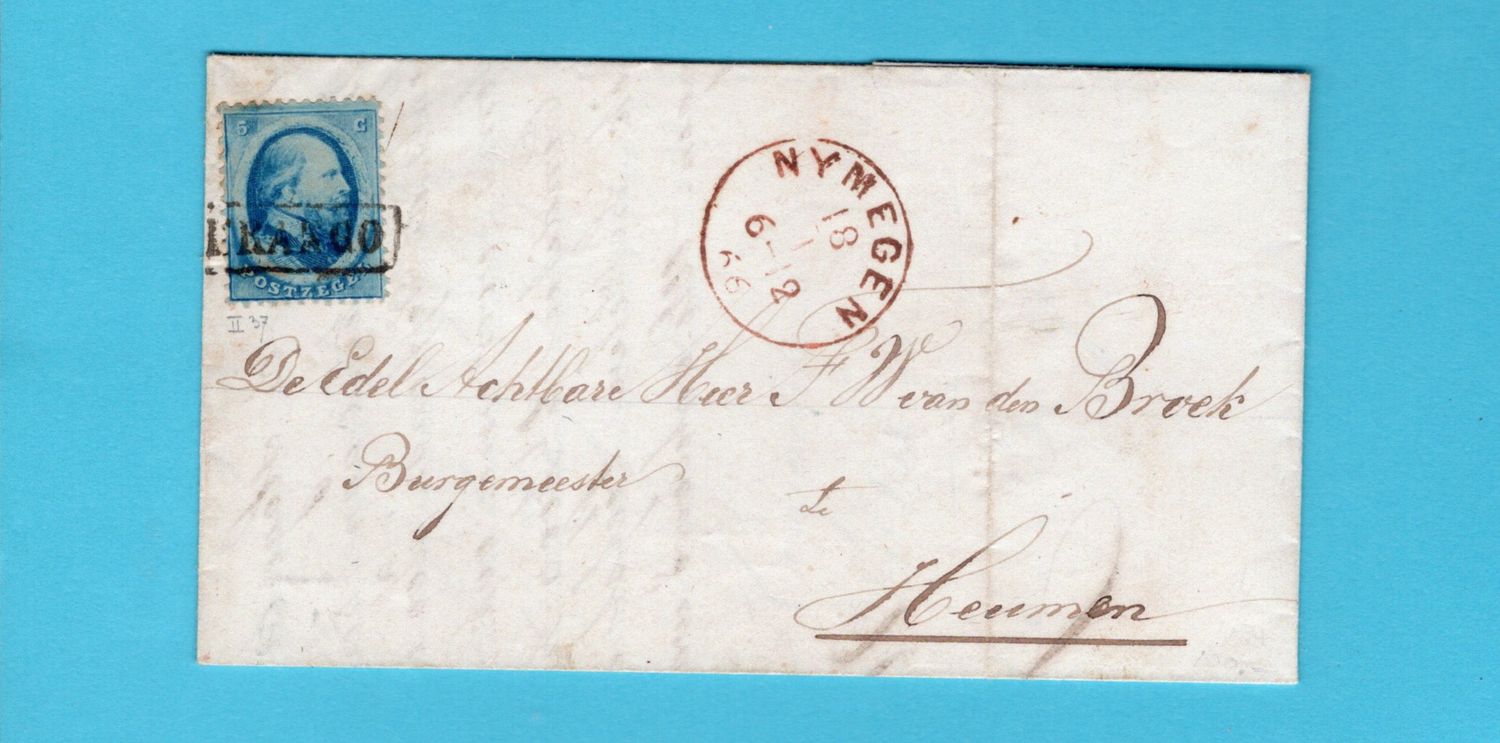 5 C
FRANCO
POSTZEGEL
II 37
NYMEGEN
18
1
6-12
66
De Edel Achtbare Heer F W van den Broek
Burgemeester
te
Heumen